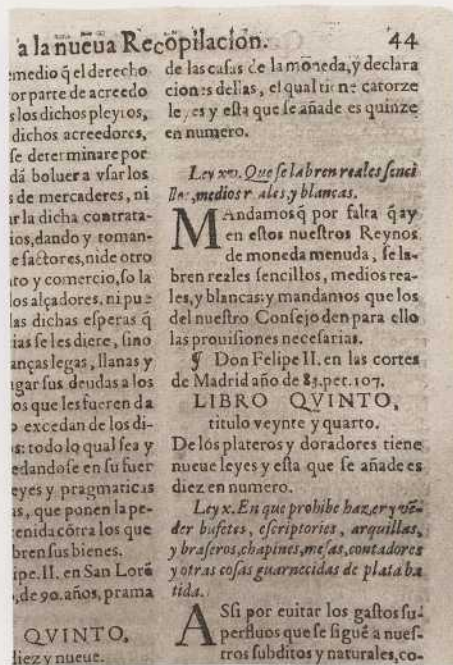 a la nueua Recopilacion. 44
emedio q̃ el derecho
or parte de acreedo
s los dichos pleytos,
dichos acreedores,
se determinare por
dá boluer a vsar los
s de mercaderes, ni
ar la dicha contrata-
ios, dando y toman-
e factores, ni de otro
to y comercio, so la
los alçadores, ni pue
las dichas esperas q̃
ias se les diere, sino
anças legas, llanas y
agar sus deudas a los
os que les fueren da
o excedan de los di-
s: todo lo qual sea y
edandose en su fuer
eyes y pragmaticas
as, que ponen la pe-
tenida cõtra los que
bren sus bienes.
ipe. II. en San Lorẽ
, de 90. años, prama
QVINTO,
diez y nueue.
de las casas de la moneda, y declara
ciones dellas, el qual tiene catorze
leyes y esta que se añade es quinze
en numero.
Ley xv. Que se labren reales senci
llos, medios reales, y blancas.
MAndamos q̃ por falta q̃ ay
en estos nuestros Reynos
de moneda menuda, se la-
bren reales sencillos, medios rea-
les, y blancas: y mandamos que los
del nuestro Consejo den para ello
las prouisiones necesarias.
¶ Don Felipe II. en las cortes
de Madrid año de 83. pet. 107.
LIBRO QVINTO,
titulo veynte y quarto.
De los plateros y doradores tiene
nueue leyes y esta que se añade es
diez en numero.
Ley x. En que prohibe hazer y vẽ-
der bufetes, escriptories, arquillas,
y braseros, chapines, mesas, contadores
y otras cosas guarnecidas de plata ba
tida.
ASsi por euitar los gastos su-
perfluos que se siguẽ a nues-
tros subditos y naturales, co-